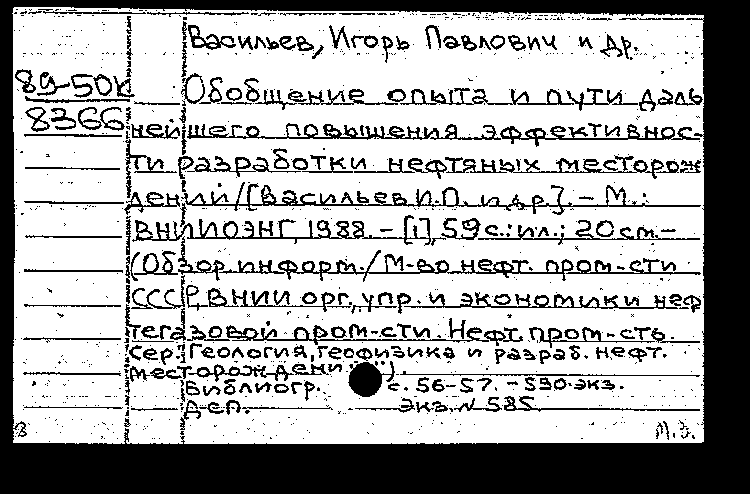 Васильев, Игорь Павлович и др.
89-50к
8366
Обобщение опыта и пути даль
нейшего повышения эффективнос-
ти разработки нефтяных месторож
дений/[Васильев И.П. и др]. – М.:
ВНИИОЭНГ, 1988. – [1], 59 с.: ил.; 20 см. –
(Обзор. информ. / М-во нефт. пром-сти
СССР, ВНИИ орг., упр. и экономики неф
тегазовой пром-сти. Нефт. пром-сть.
Сер.: Геология, геофизика и разраб. нефт.
месторождени ).
Библиогр. с. 56-57. – 590 экз.
Деп. экз. N 585
В М.Э.